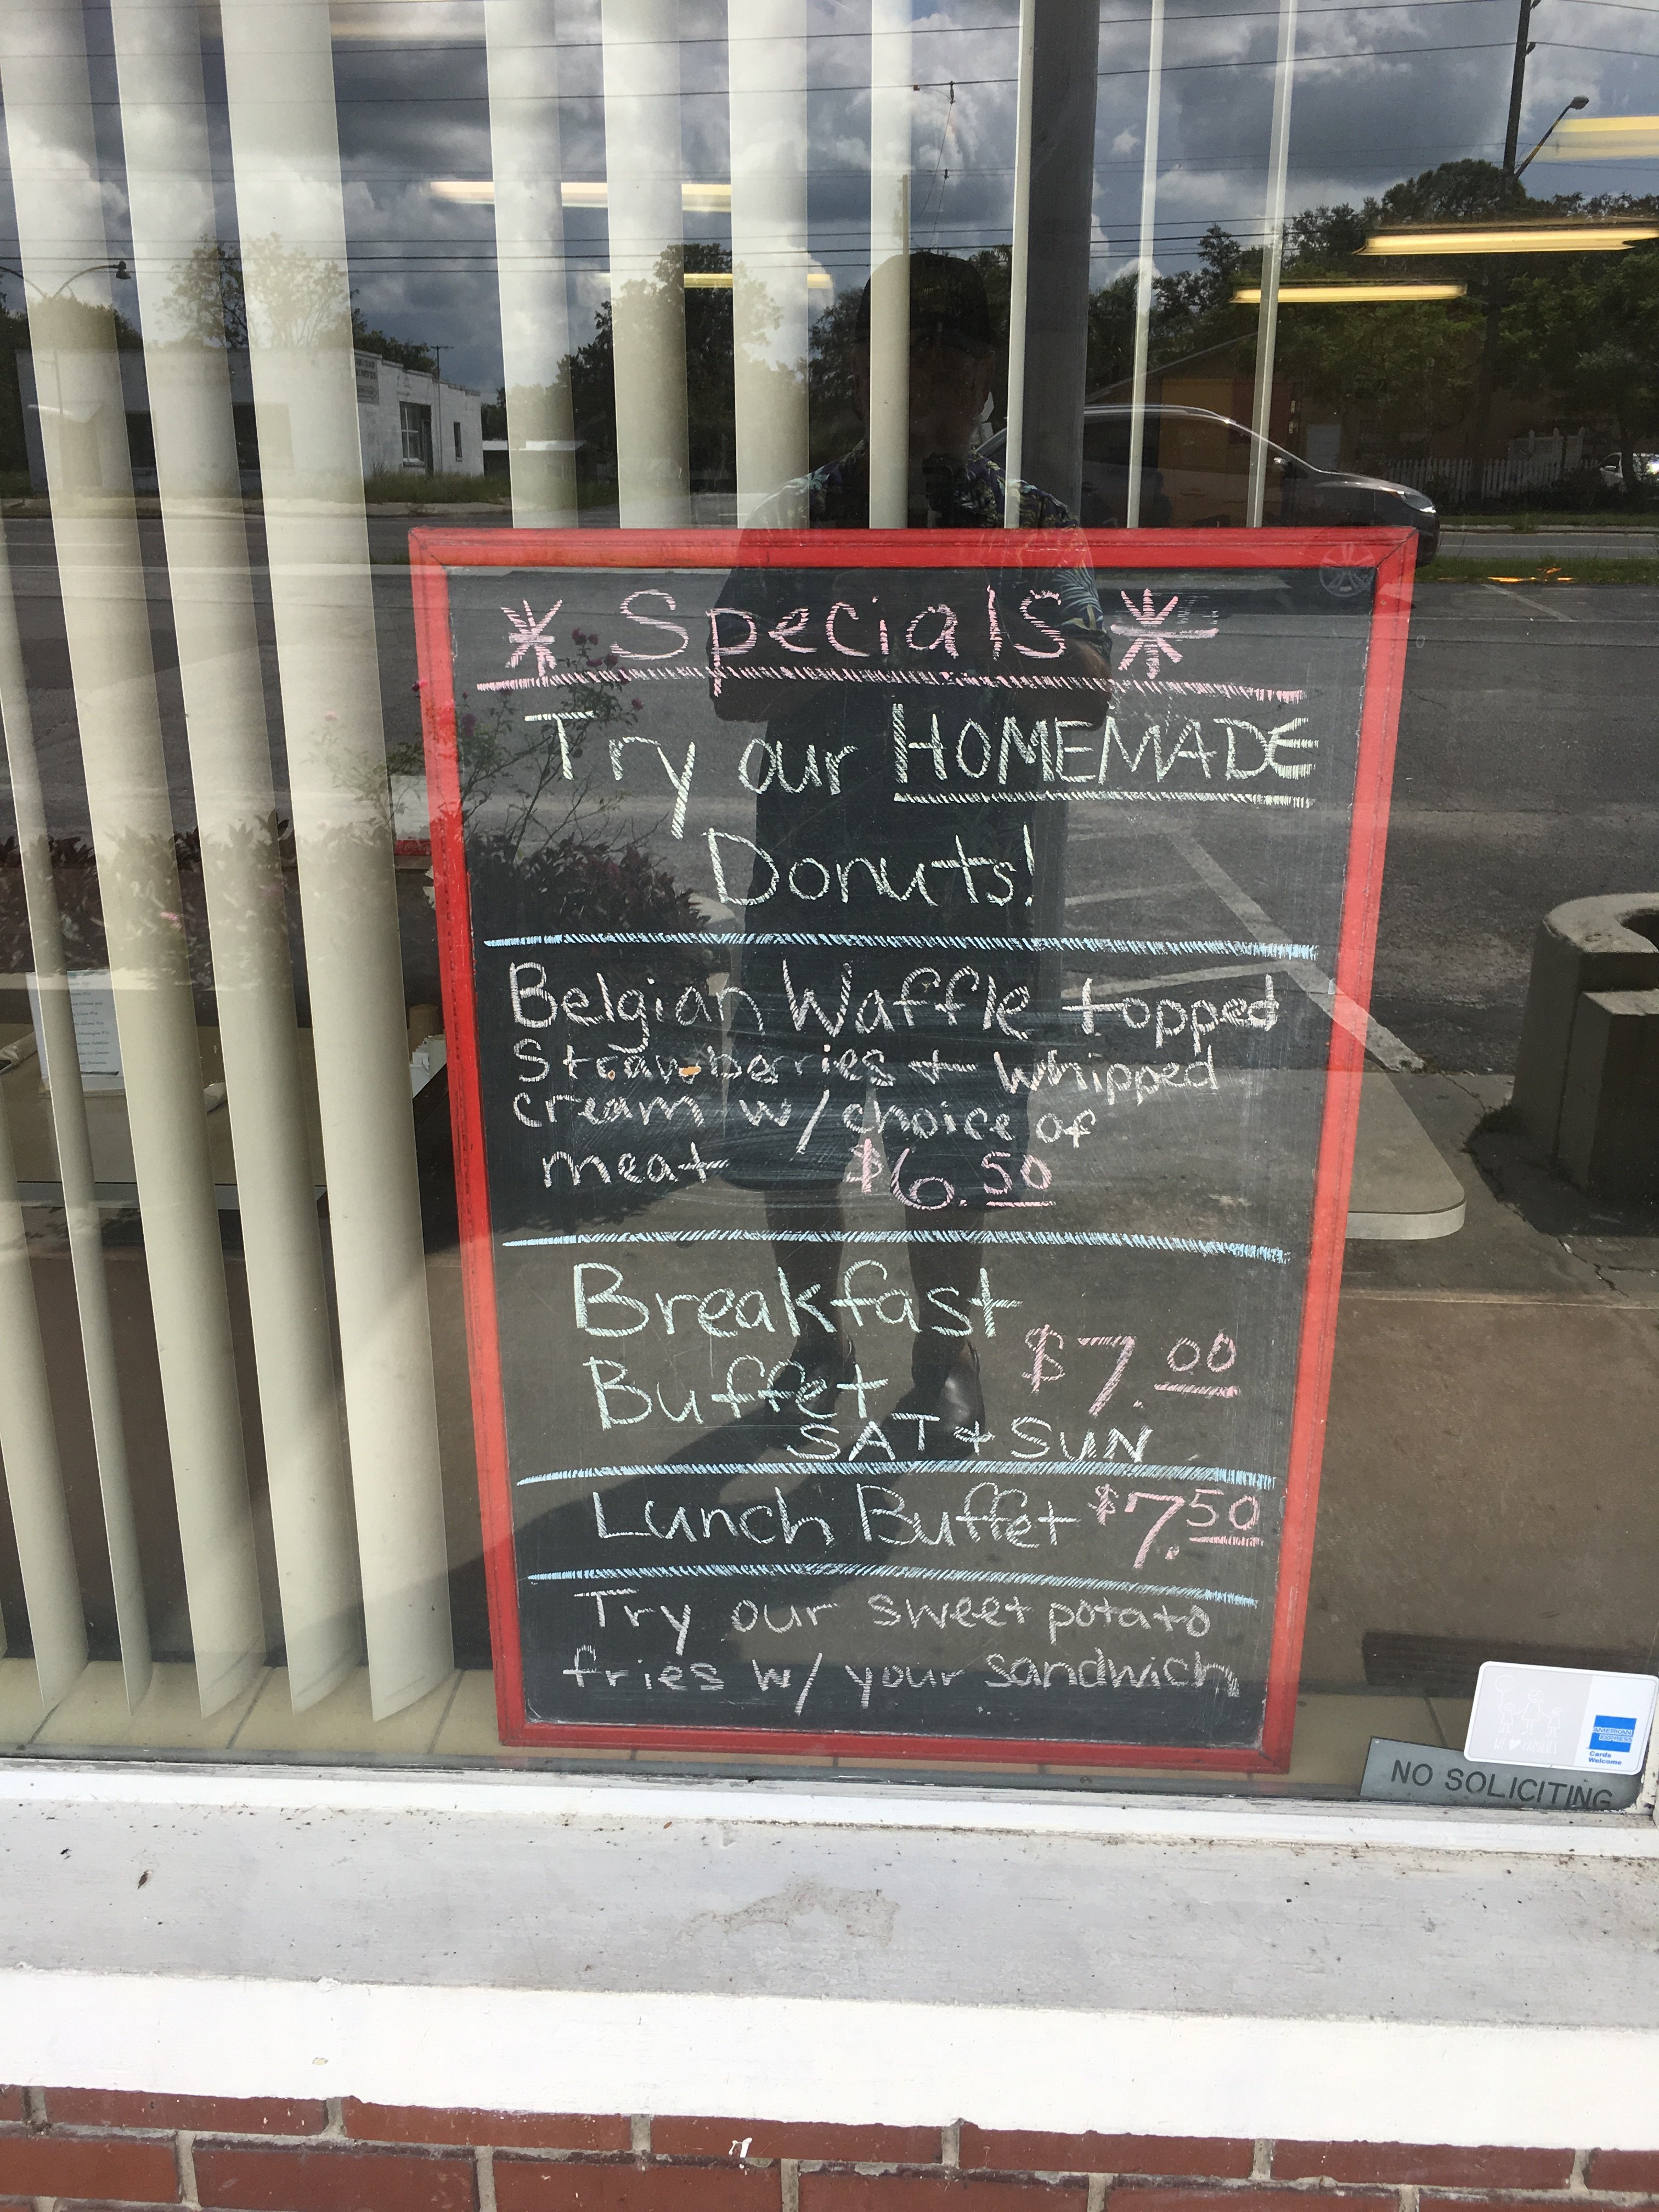 * Specials *
Try our HOMEMADE
Donuts!
Belgian Waffle topped
Strawberries + whipped
cream w/ choice of
meat $6.50
Breakfast
Buffet $7.00
SAT + SUN
Lunch Buffet $7.50
Try our sweet potato
fries w/ your sandwich
AMERICAN
EXPRESS
Cards
Welcome
NO SOLICITING